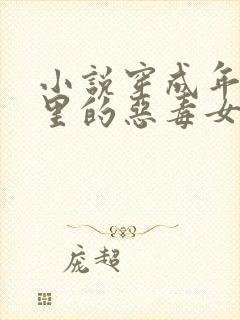 小说穿成年
里的恶毒女
庞超